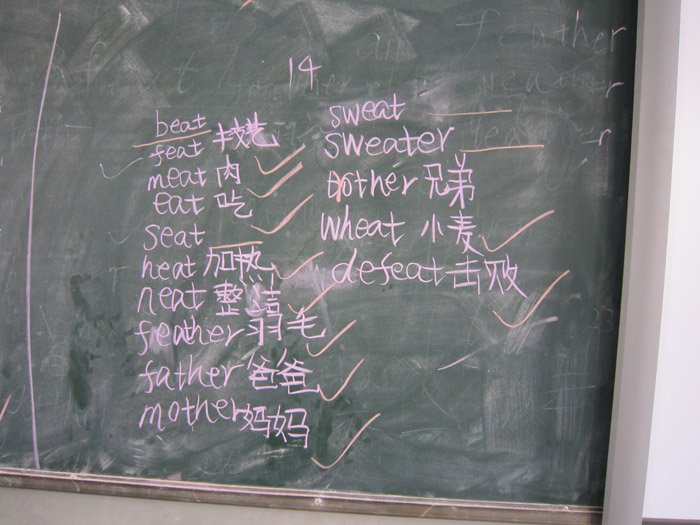 14
beat
feat 技艺
meat 肉
eat 吃
seat
heat 加热
neat 整洁
feather 羽毛
father 爸爸
mother 妈妈
sweat
sweater
bother 兄弟
wheat 小麦
defeat 击败
feather